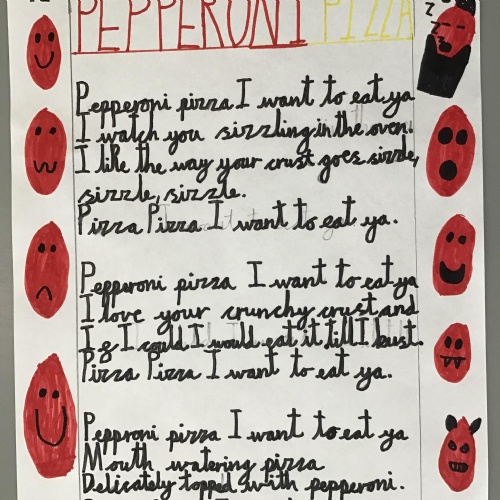 PEPPERONI PIZZA
z
z
z
Pepperoni pizza I want to eat ya
I watch you sizzling in the oven.
I like the way your crust goes sizzle,
sizzle, sizzle.
Pizza Pizza I want to eat ya.
Pepperoni pizza I want to eat ya
I love your crunchy crust and
If I could I would eat it till I bust.
Pizza Pizza I want to eat ya.
Pepproni pizza I want to eat ya
Mouth watering pizza
Delicately topped with pepperoni.